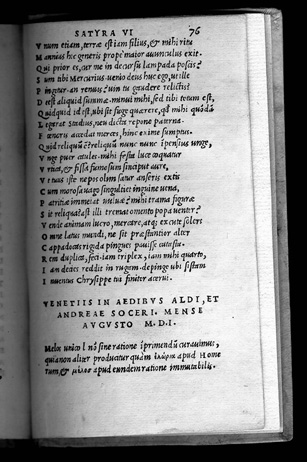 SATYRA VI 76
V num etiam, terræ est iam filius, & mihi ritu
M annius hic generis prope maior auunculus exit.
Q ui prior es, cur me in decursu lampada poscis?
S um tibi Mercurius. uenio deus huc ego, ut ille
P ingitur. an renuis? uin tu gaudere relictis?
D eest aliquid summæ. minui mihi, sed tibi totum est,
Q uidquid id est. ubi sit fuge quærere, quod mihi quondam
L egarat Stadius, neu dicta repone paterna.
F œnoris accedat merces, hinc exime sumptus.
Q uid reliquum est? reliquum nunc nunc ipensius unge,
V nge puer caules. mihi festa luce coquatur
V rtica, & fissa fumosum sinciput aure,
V t tuus iste nepos olim satur anseris extis
C um morosa uago singultiet inguine uena,
P atritiæ immeiat uuluæ? mihi trama figuræ
S it reliqua? ast illi tremat omento popa uenter?
V ende animam lucro, mercare, atque excute solers
O mne latus mundi, ne sit præstantior alter
C appadocas rigida pingues pauisse catasta.
R em duplica, feci. iam triplex, iam mihi quarto,
I am decies redit in rugam. depinge ubi sistam
I nuentus Chrysippe tui finitor acerui.
VENETIIS IN AEDIBVS ALDI, ET
ANDREAE SOCERI. MENSE
AVGVSTO M.D.I.
unico l non sine ratione imprendum curauimus,
quianon aliter producatur quàm apud Home
rum & μέλος apud eundem ratione immutabilis.